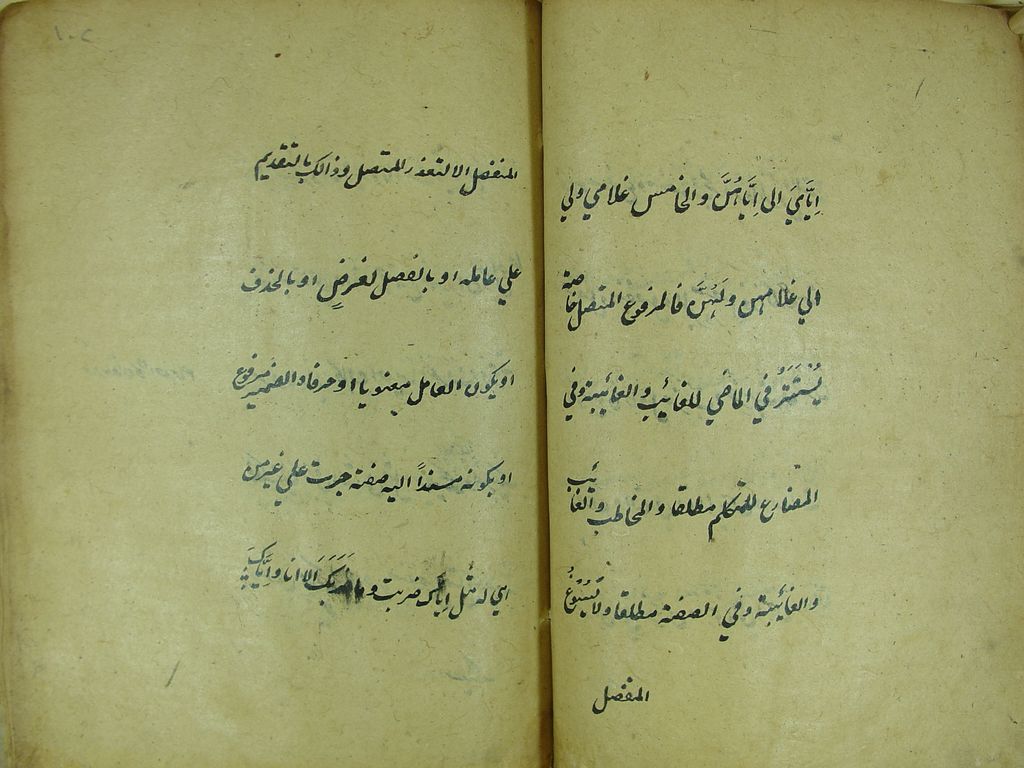 إِيَّايَ الى إِيَّاهُنَّ والخامس غلامي ولي
الي غلامهن ولَهُنَّ فالمرفوع المتصل خاصة
يُسْتَتَرُ في الماضي للغائب والغائبة وفي
المضارع للمتكلم مطلقا والمخاطب والغائب
والغائبة وفي الصفة مطلقا ولا يَسُوغُ
المنفصل
١٠٢
المنفصل الا لتعذر المتصل وذالك بالتقديم
علي عامله او بالفصل لغرضٍ او بالحذف
او يكون العامل معنويا او حرفا والضمير مرفوع
او بكونه مسنداً اليه صفة جرت علي غير من
هي له مثل اياك ضربت وما ضَرَبَكَ الا انا وإِيَّاكَ